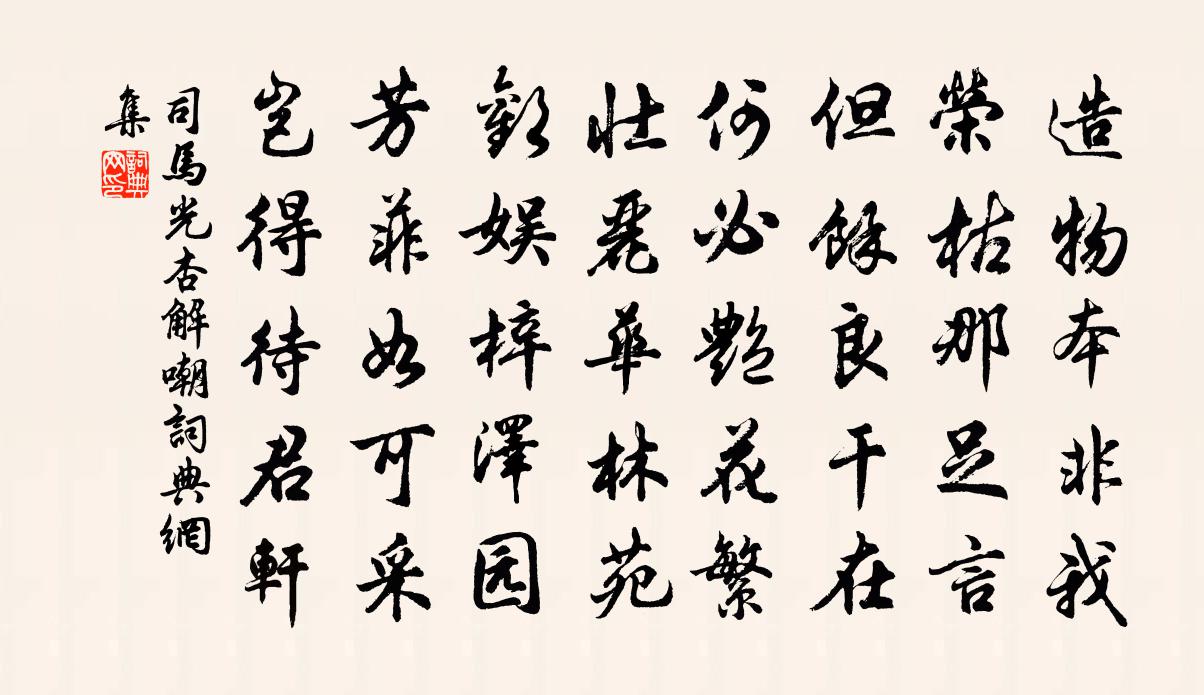 造物本非我
榮枯那足言
但餘良干在
何必艷花繁
壯麗華林苑
歡娛梓澤园
芳菲如可采
岂得待君軒
司馬光杏解嘲詞典網
集
詞典
网印